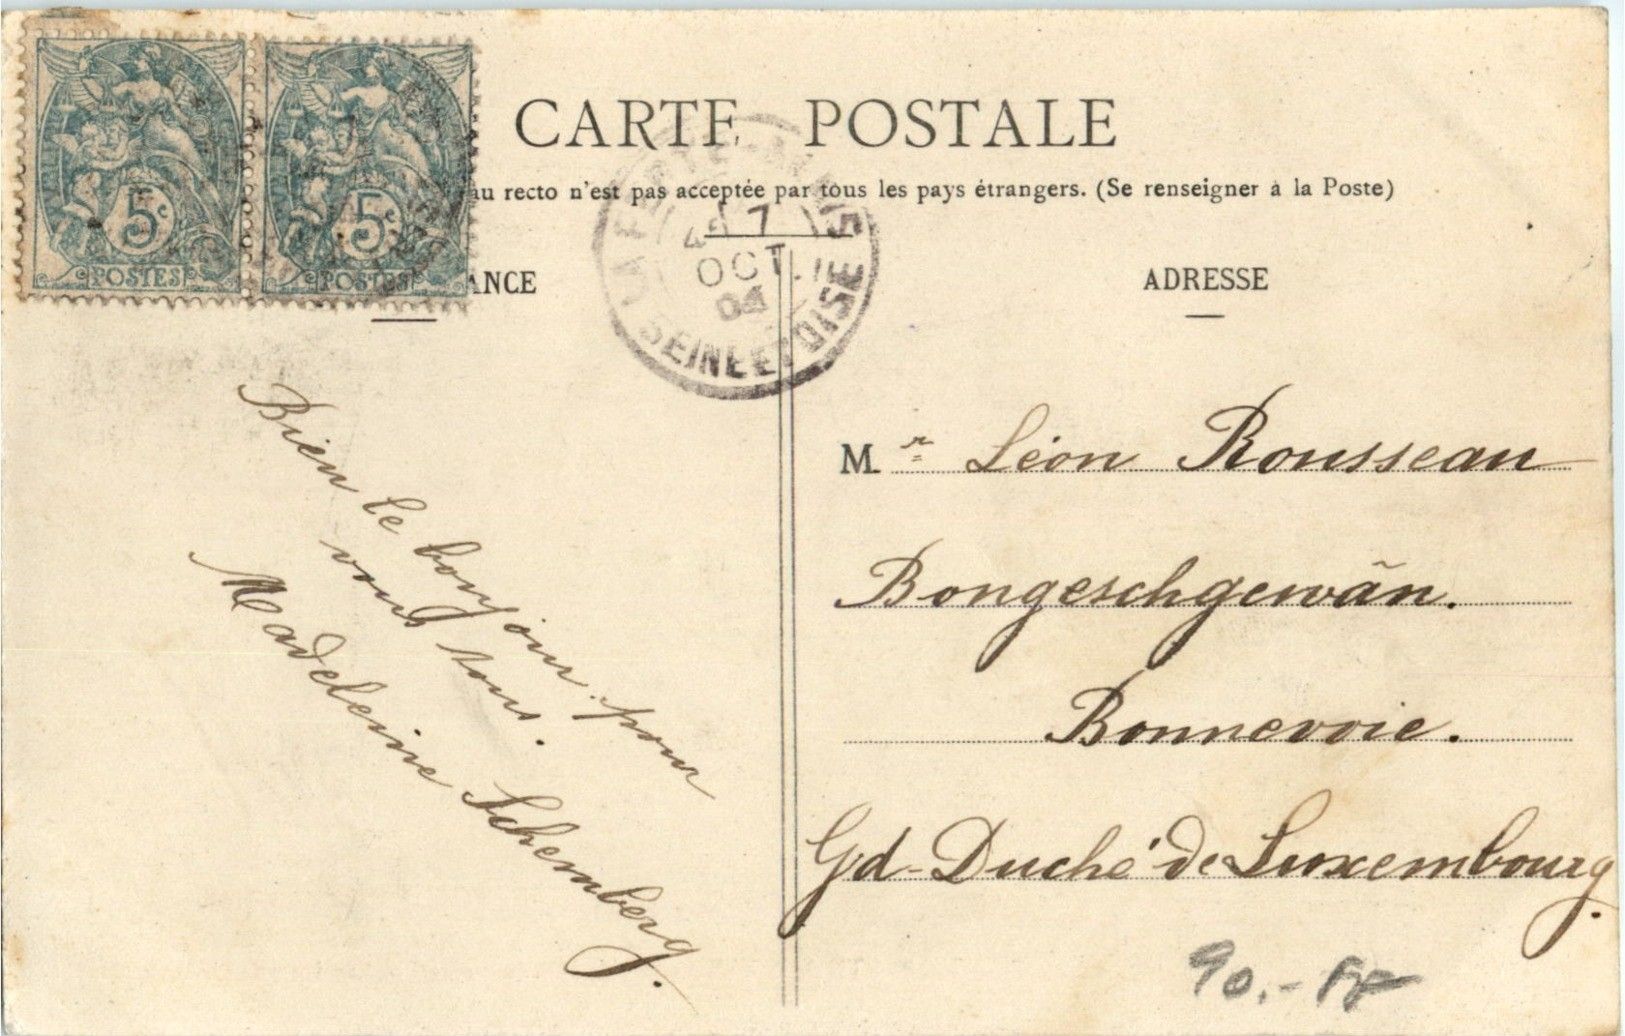 CARTE POSTALE
au recto n'est pas acceptée par tous les pays étrangers. (Se renseigner à la Poste)
5c
POSTES
5c
POSTES
7
OCT.
04
SEINE ET OISE
ANCE
ADRESSE
Bien le bonjour pour
vous tous.
Madeleine Schemberg.
M.r Léon Rousseau
Bongeschgewän.
Bonnevoie.
Gd-Duché de Luxembourg.
90.-